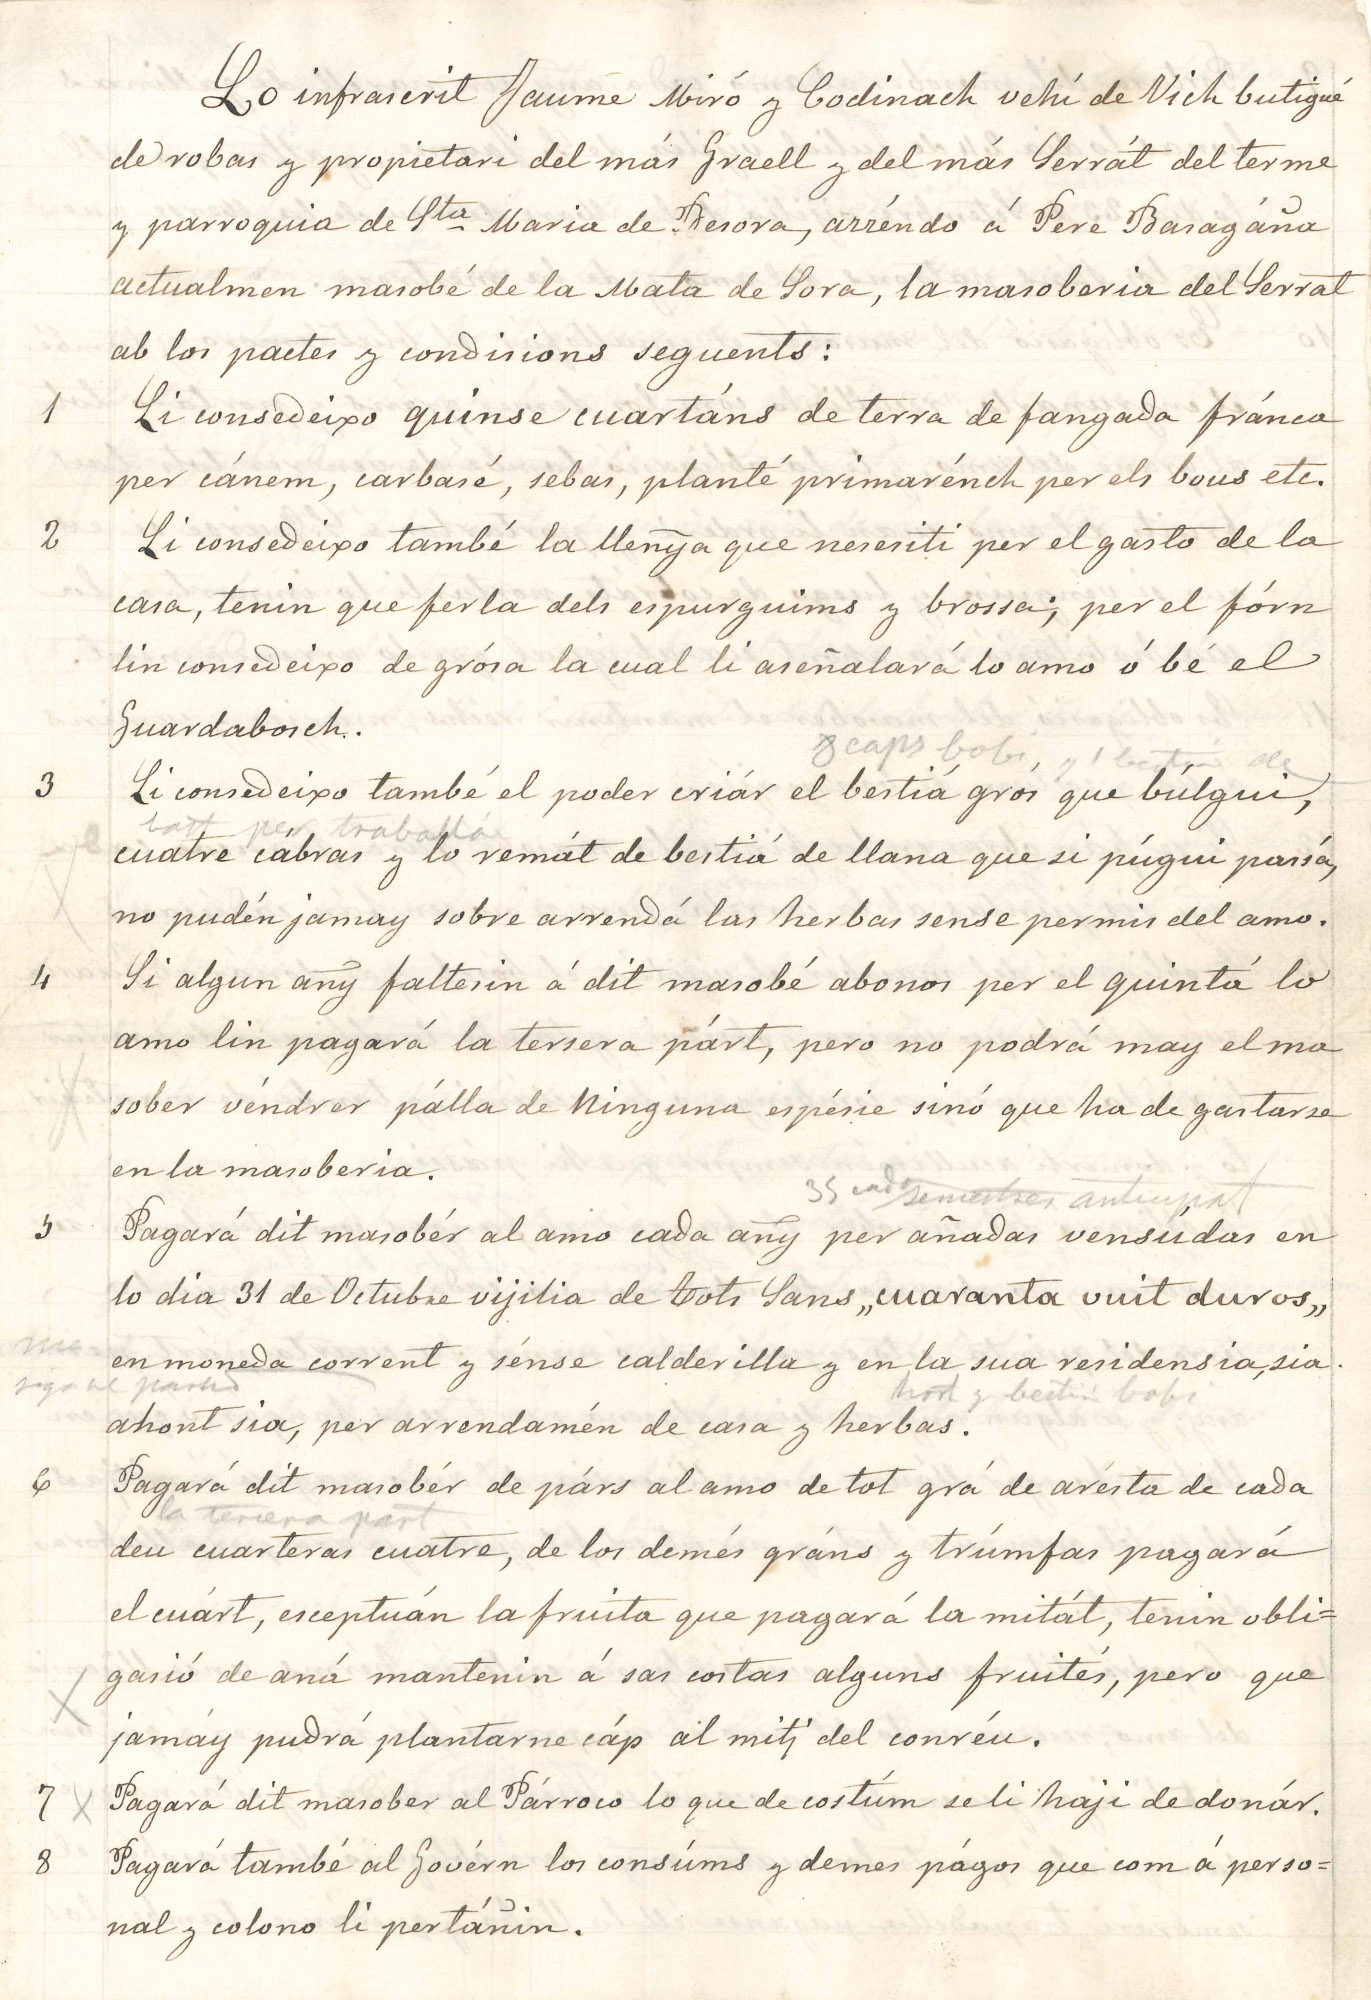 Lo infrascrit Jaume Miró y Codinach vehí de Vich butigué
de robas y propietari del más Graell y del más Serrát del terme
y parroquia de Sta Maria de Besora, arréndo á Pere Basagáña
actualmen masobé de la Mata de Sora, la masoberia del Serrat
ab los pactes y condisions seguents:
1 Li consedeixo quinse cuartáns de terra de fangada fránca
per cánem, carbasé, sebas, planté primarénch per els bous etc.
2 Li consedeixo també la lleñya que nesesiti per el gasto de la
casa, tenin que ferla dels espurguims y brossa; per el fórn
lin consedeixo de grósa la cual li aseñalará lo amo ó bé el
Guardabosch.
8 caps bobi, y 1 bestia de
3 Li consedeixo també el poder criár el bestiá grós que búlgui,
bast per traballá
cuatre cábras y lo remát de bestiá de llana que si púgui passá,
no pudén jamay sobre arrendá las herbas sense permis del amo.
4 Si algun añy faltesin á dit masobé abonos per el quintá lo
amo lin pagará la tersera párt, pero no podrá may el ma
sober véndrer pálla de ninguna espésie sinó que ha de gastarse
en la masoberia.
35 cada semestres anticipat
5 Pagará dit masobér al amo cada añy per añadas vensúdas en
lo dia 31 de Octubre vijilia de Tots Sans „cuaranta vuit duros„
en moneda corrent y sénse calderilla y en la sua residensia, sia
hort y bestia bobi
ahont sia, per arrendamén de casa y herbas.
6 Pagará dit masobér de párs al amo de tot grá de arésta de cada
la tercera part
deu cuarteras cuatre, de los demés gráns y trúmfas pagará
el cuárt, esceptuán la fruita que pagará la mitát, tenin obli=
gasió de aná mantenin á sas costas alguns fruités, pero que
jamáy pudrá plantarne cáp al mitj del conréu.
7 Pagará dit masober al Párroco lo que de costúm se li haji de donár.
8 Pagará també al Govérn los consúms y demes págos que com á perso=
nal y colono li pertáñin.